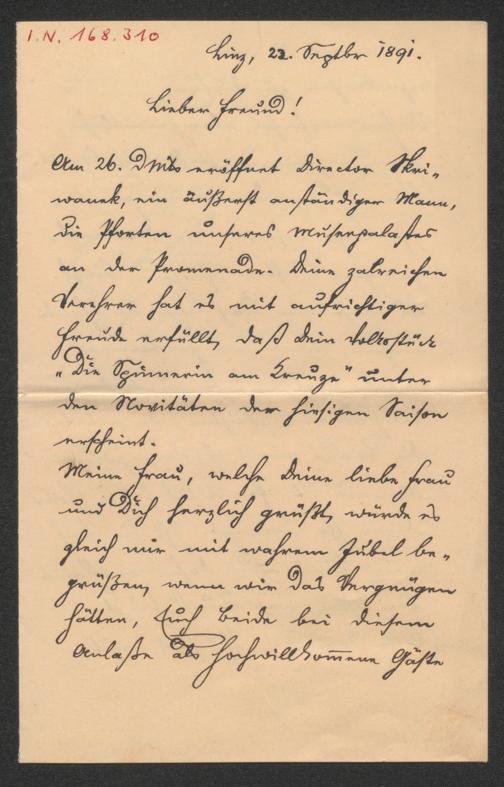 I.N. 168.310
Linz, 22. Septbr 1891.
Lieber Freund!
Am 26. d Mts eröffnet Director Skri-
wanek, ein äußerst anständiger Mann,
die Pforten unseres Musenpalastes
an der Promenade. Deine zalreichen
Verehrer hat es mit aufrichtiger
Freude erfüllt, daß dein Volksstück
„Die Spinnerin am Kreuze" unter
den Novitäten der hiesigen Saison
erscheint.
Meine Frau, welche Deine liebe Frau
und Dich herzlich grüßt, würde es
gleich mir mit wahrem Jubel be-
grüßen, wenn wir das Vergnügen
hätten, Euch Beide bei diesem
Anlaße als hochwillkommene Gäste